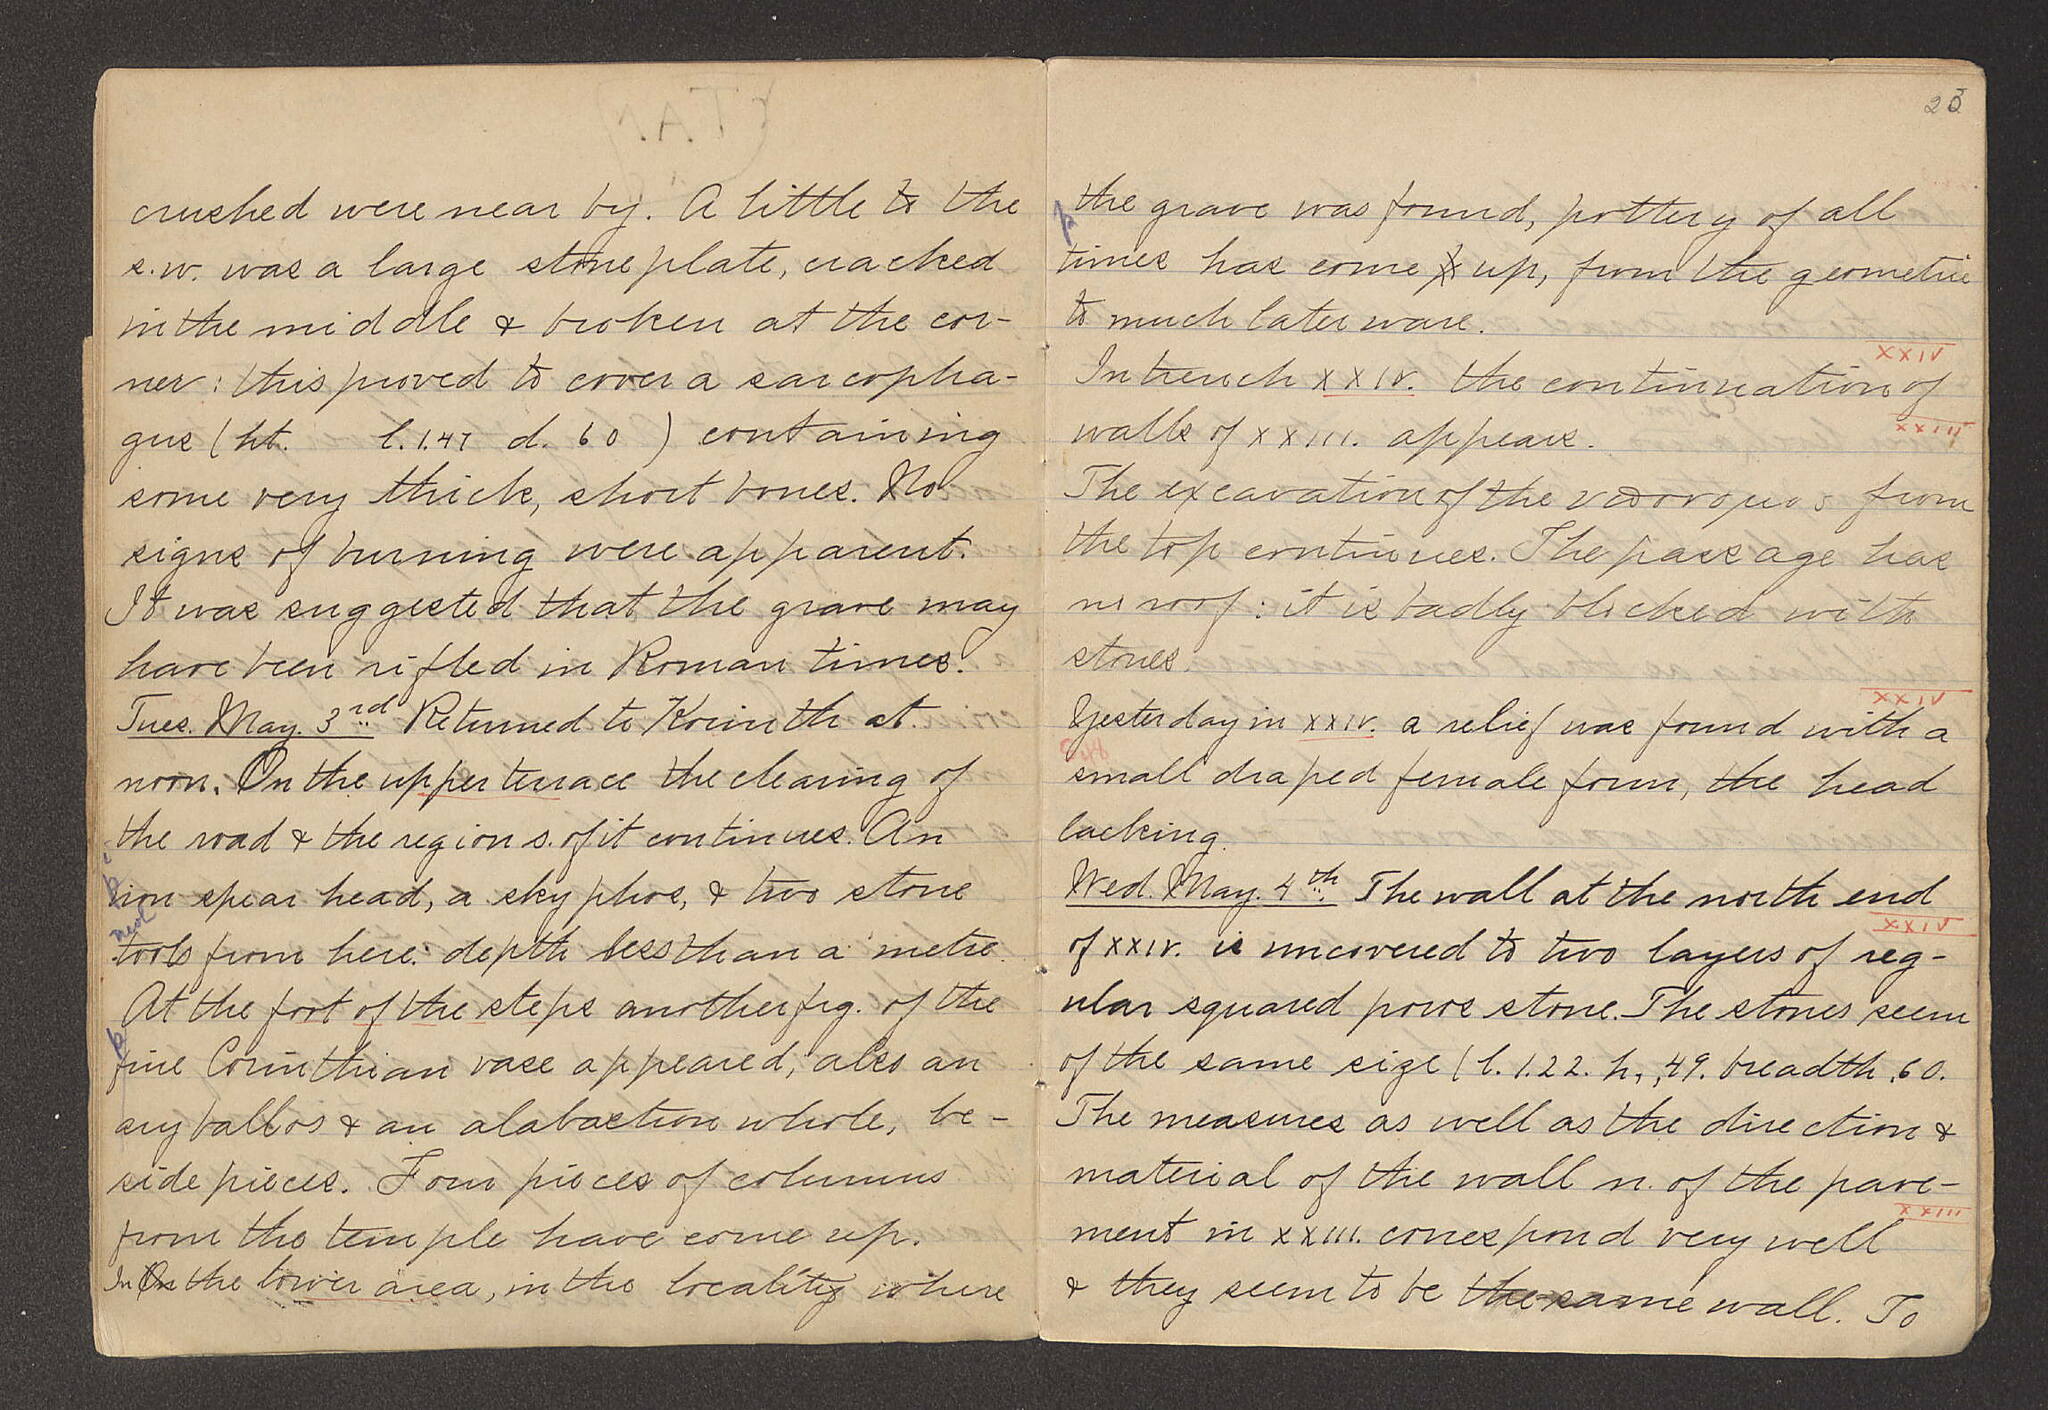 crushed were near by. A little to the
s.w. was a large stone plate, cracked
in the middle & broken at the cor-
ner: this proved to cover a sarcopha-
gus (ht.      l. 1.47  d. 60 ) containing
some very thick, short bones. No
signs of burning were apparent.
It was suggested that the grave may
have been rifled in Roman times.
Tues. May. 3rd Returned to Korinth at
noon. On the upper terrace the clearing of
the road & the region s. of it continues. An
iron spear head, a skyphos, & two stone
tools from here: depth less than a metre.
At the foot of the steps another frg. of the
fine Corinthian vase appeared, also an
aryballos & an alabastron whole, be-
side pieces. Four pieces of columns
from the temple have come up.
In the lower area, in the locality where
23
the grave was found, pottery of all
times has come up, from the geometric
to much later ware.
XXIV
In trench XXIV. the continuation of
XXIII
walls of XXIII. appears.
The excavation of the from
the top continues. The passage has
no roof: it is badly blocked with
stones.
XXIV
Yesterday in XXIV. a relief was found with a
small draped female form, the head
lacking.
Wed. May. 4th. The wall at the north end
XXIV
of XXIV. is uncovered to two layers of reg-
ular squared poros stone. The stones seem
of the same size (l. 1.22. h. .49. breadth .60.
The measures as well as the direction &
material of the wall n. of the pave-
XXIII
ment in XXIII. correspond very well
& they seem to be the same wall. To